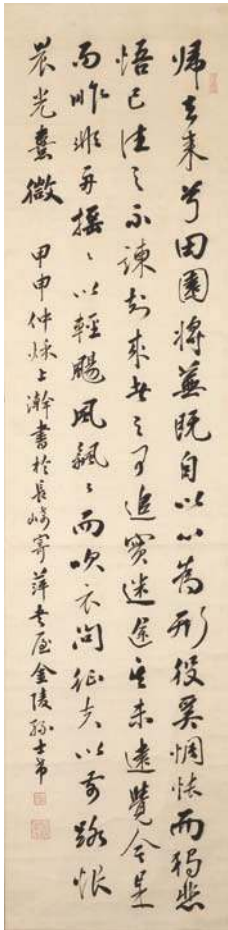 帰去来兮田園將蕪既自以心為形役奚惆悵而独悲
悟已往之不諫知来者之可追實迷途其未遠覺今是
而昨非舟搖〻以輕颺風飄〻而吹衣問征夫以前路恨
晨光熹微 甲申仲秌上澣書於長崎寄萍老屋金陵孫士希